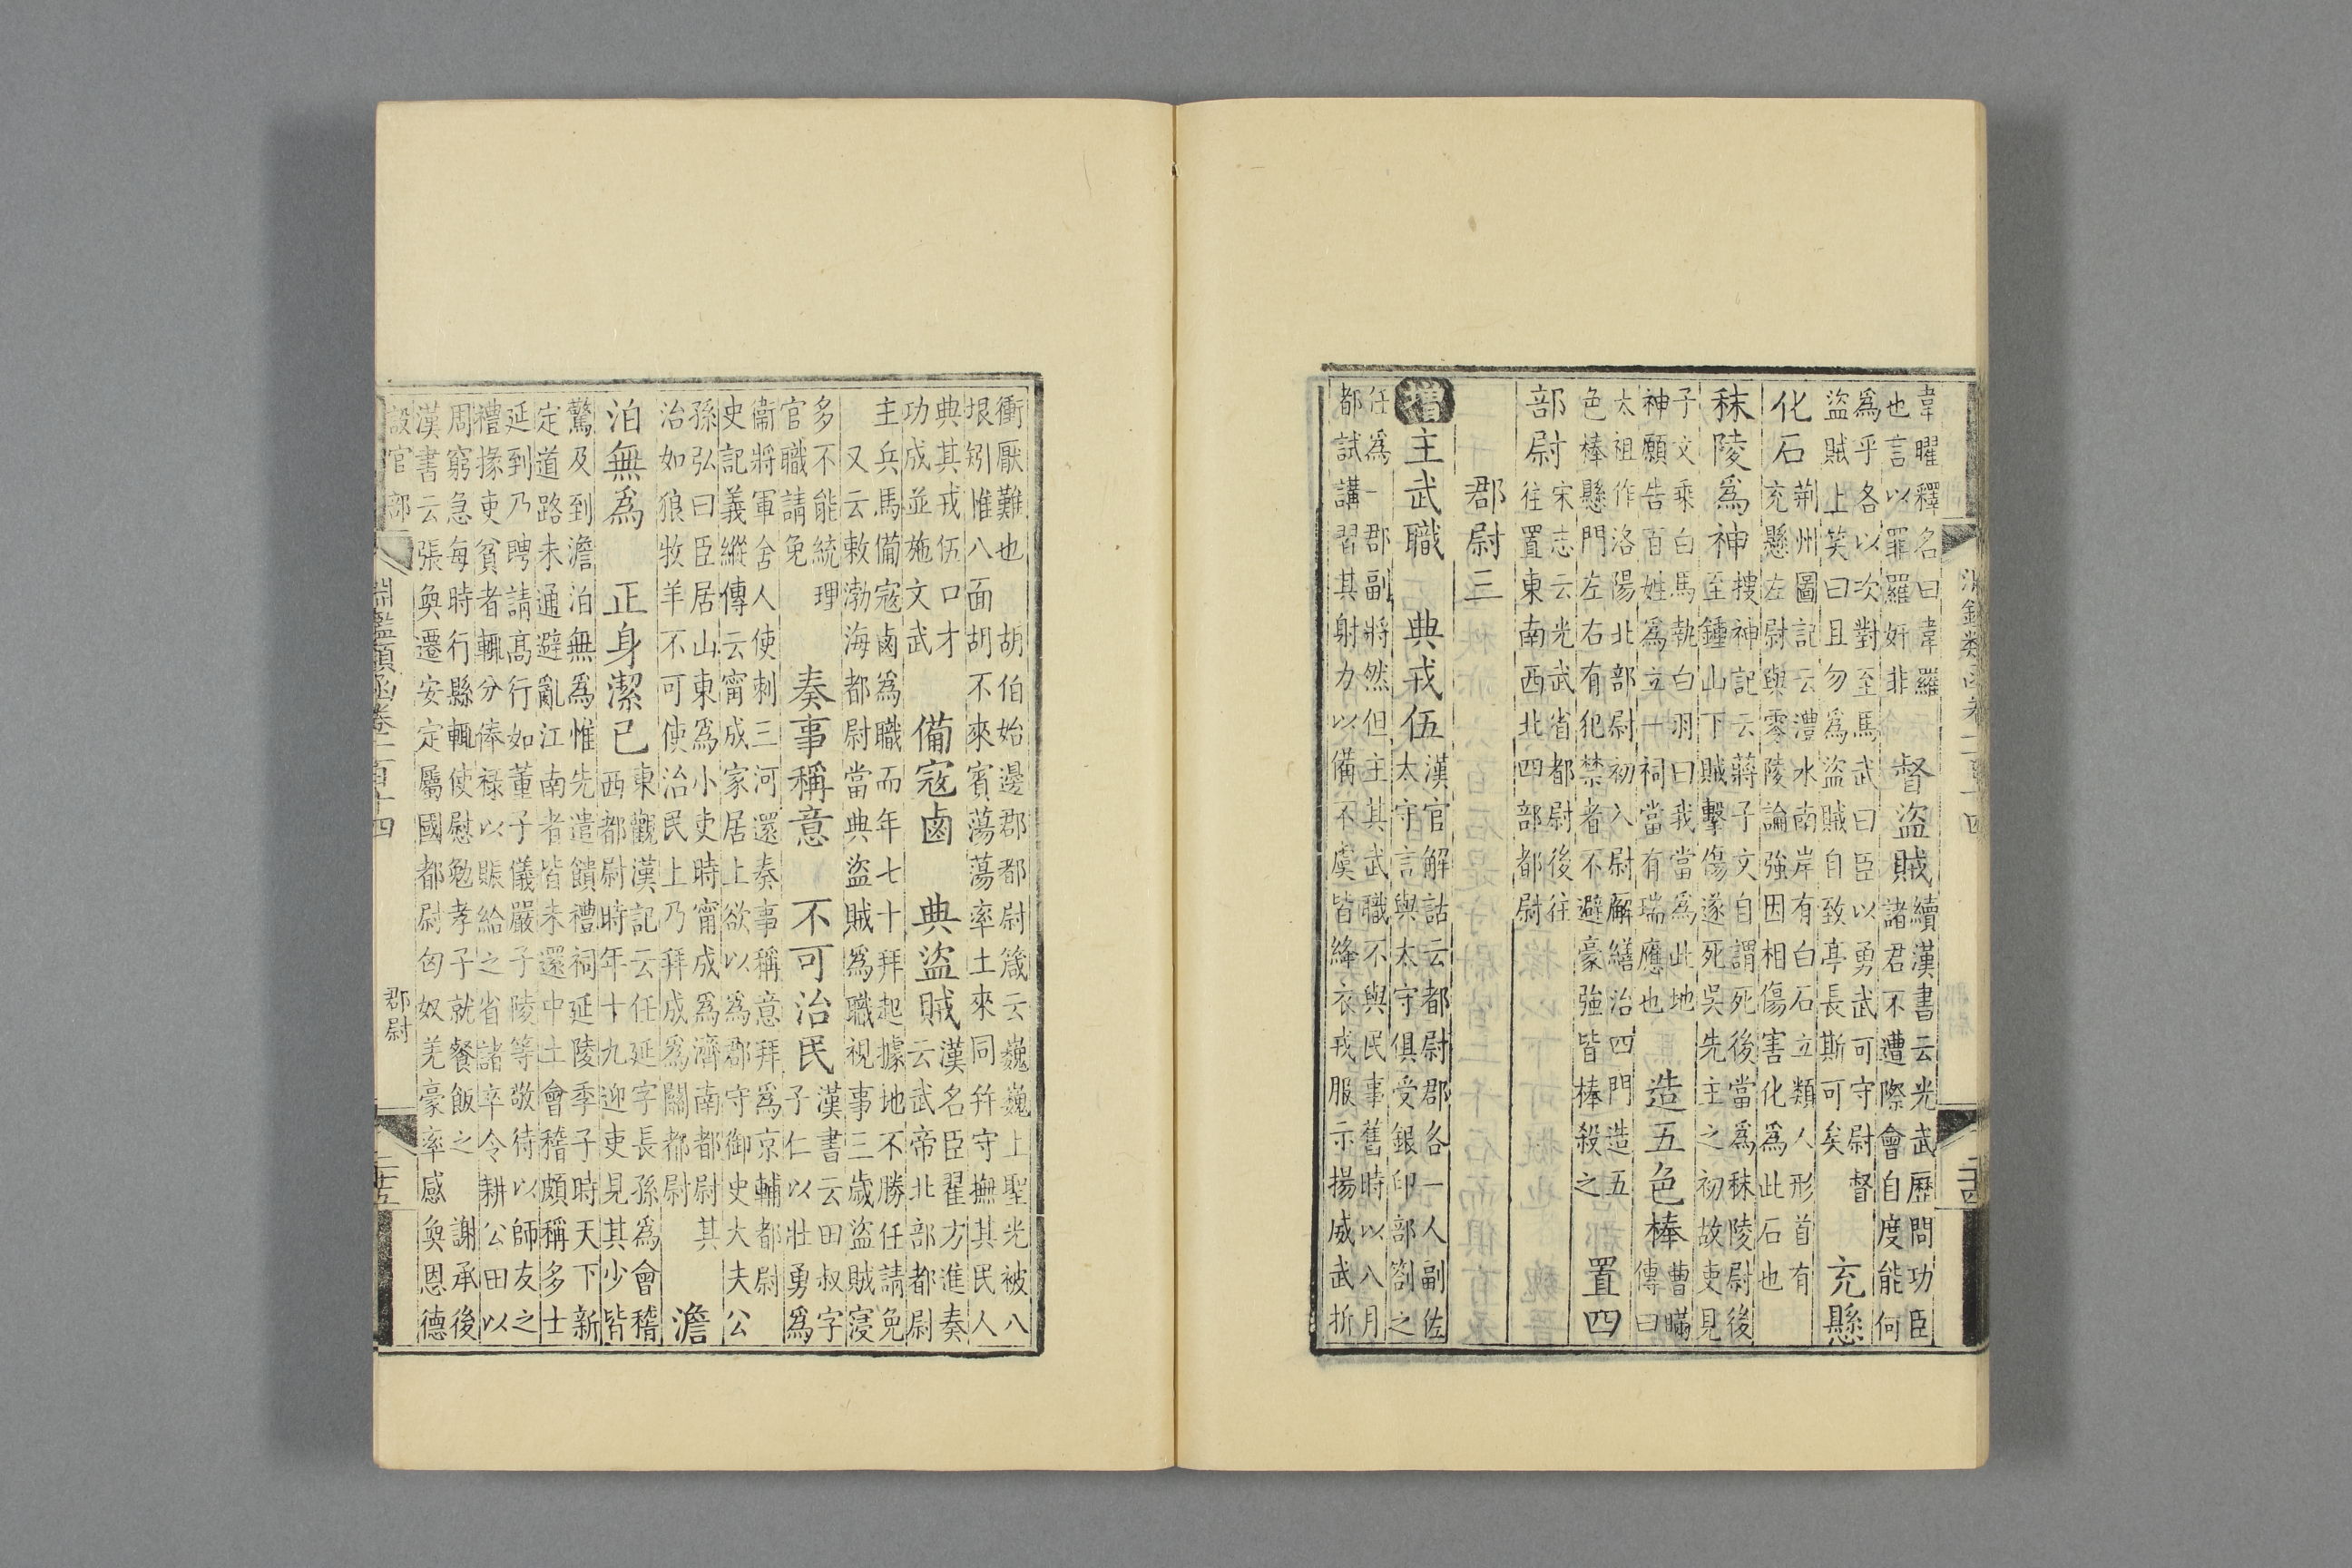 淵鑑類函卷二百十四
韋曜釋名曰韋羅
也言以罪羅奸非
督盜賊
續漢書云光武歷問功臣
諸君不遭際會自度能何
爲乎各以次對至馬武曰臣以勇武可守尉督
盜賊上笑曰且勿爲盜賊自致亭長斯可矣
充懸
化石
荆州圖記云澧水南岸有白石立類人形首有
充懸左尉與零陵論強因相傷害化爲此石也
秣陵爲神
搜神記云蔣子文自謂死後當爲秣陵尉後
至鍾山下賊擊傷遂死吳先主之初故吏見
子文乘白馬執白羽曰我當爲此地
神願告百姓爲立一祠當有瑞應也
造五色棒
曹瞞
傳曰
太祖作洛陽北部尉初入尉廨繕治四門造五
色棒懸門左右有犯禁者不避豪強皆棒殺之
置四
部尉
宋志云光武省都尉後往
往置東南西北四部都尉
郡尉三
增 主武職 典戎伍
漢官解詁云都尉郡各一人副佐
太守言與太守俱受銀印部劄之
任爲一郡副將然但主其武職不與民事舊時以八月
都試講習其射力以備不虞皆絳衣戎服示揚威武折
衝厭難也 胡伯始邊郡都尉箴云巍巍上聖光被八
垠矧惟八面胡不來賓蕩蕩率土來同幷守撫其民人
典其戎伍口才
功成並施文武
備寇鹵 典盜賊
漢名臣翟方進奏
云武帝北部都尉
主兵馬備寇鹵爲職而年七十拜起據地不勝任請免
又云敕渤海都尉當典盜賊爲職視事三歲盜賊寖
多不能統理
官職請免
奏事稱意 不可治民
漢書云田叔字
子仁以壯勇爲
衞將軍舍人使刺三河還奏事稱意拜爲京輔都尉
史記義縱傳云甯成家居上欲以爲郡守御史大夫公
孫弘曰臣居山東爲小吏時甯成爲濟南都尉其
治如狼牧羊不可使治民上乃拜成爲關都尉
澹
泊無爲 正身潔已
東觀漢記云任延字長孫爲會稽
西都尉時年十九迎吏見其少皆
驚及到澹泊無爲惟先遣饋禮祠延陵季子時天下新
定道路未通避亂江南者皆未還中土會稽頗稱多士
延到乃聘請高行如董子儀嚴子陵等敬待以師友之
禮掾吏貧者輒分俸祿以賑給之省諸卒令耕公田以
周窮急每時行縣輒使慰勉孝子就餐飯之 謝承後
漢書云張奐遷安定屬國都尉匈奴羌豪率感奐恩德
設官部
淵鑑類函卷二百十四
郡尉
二十五